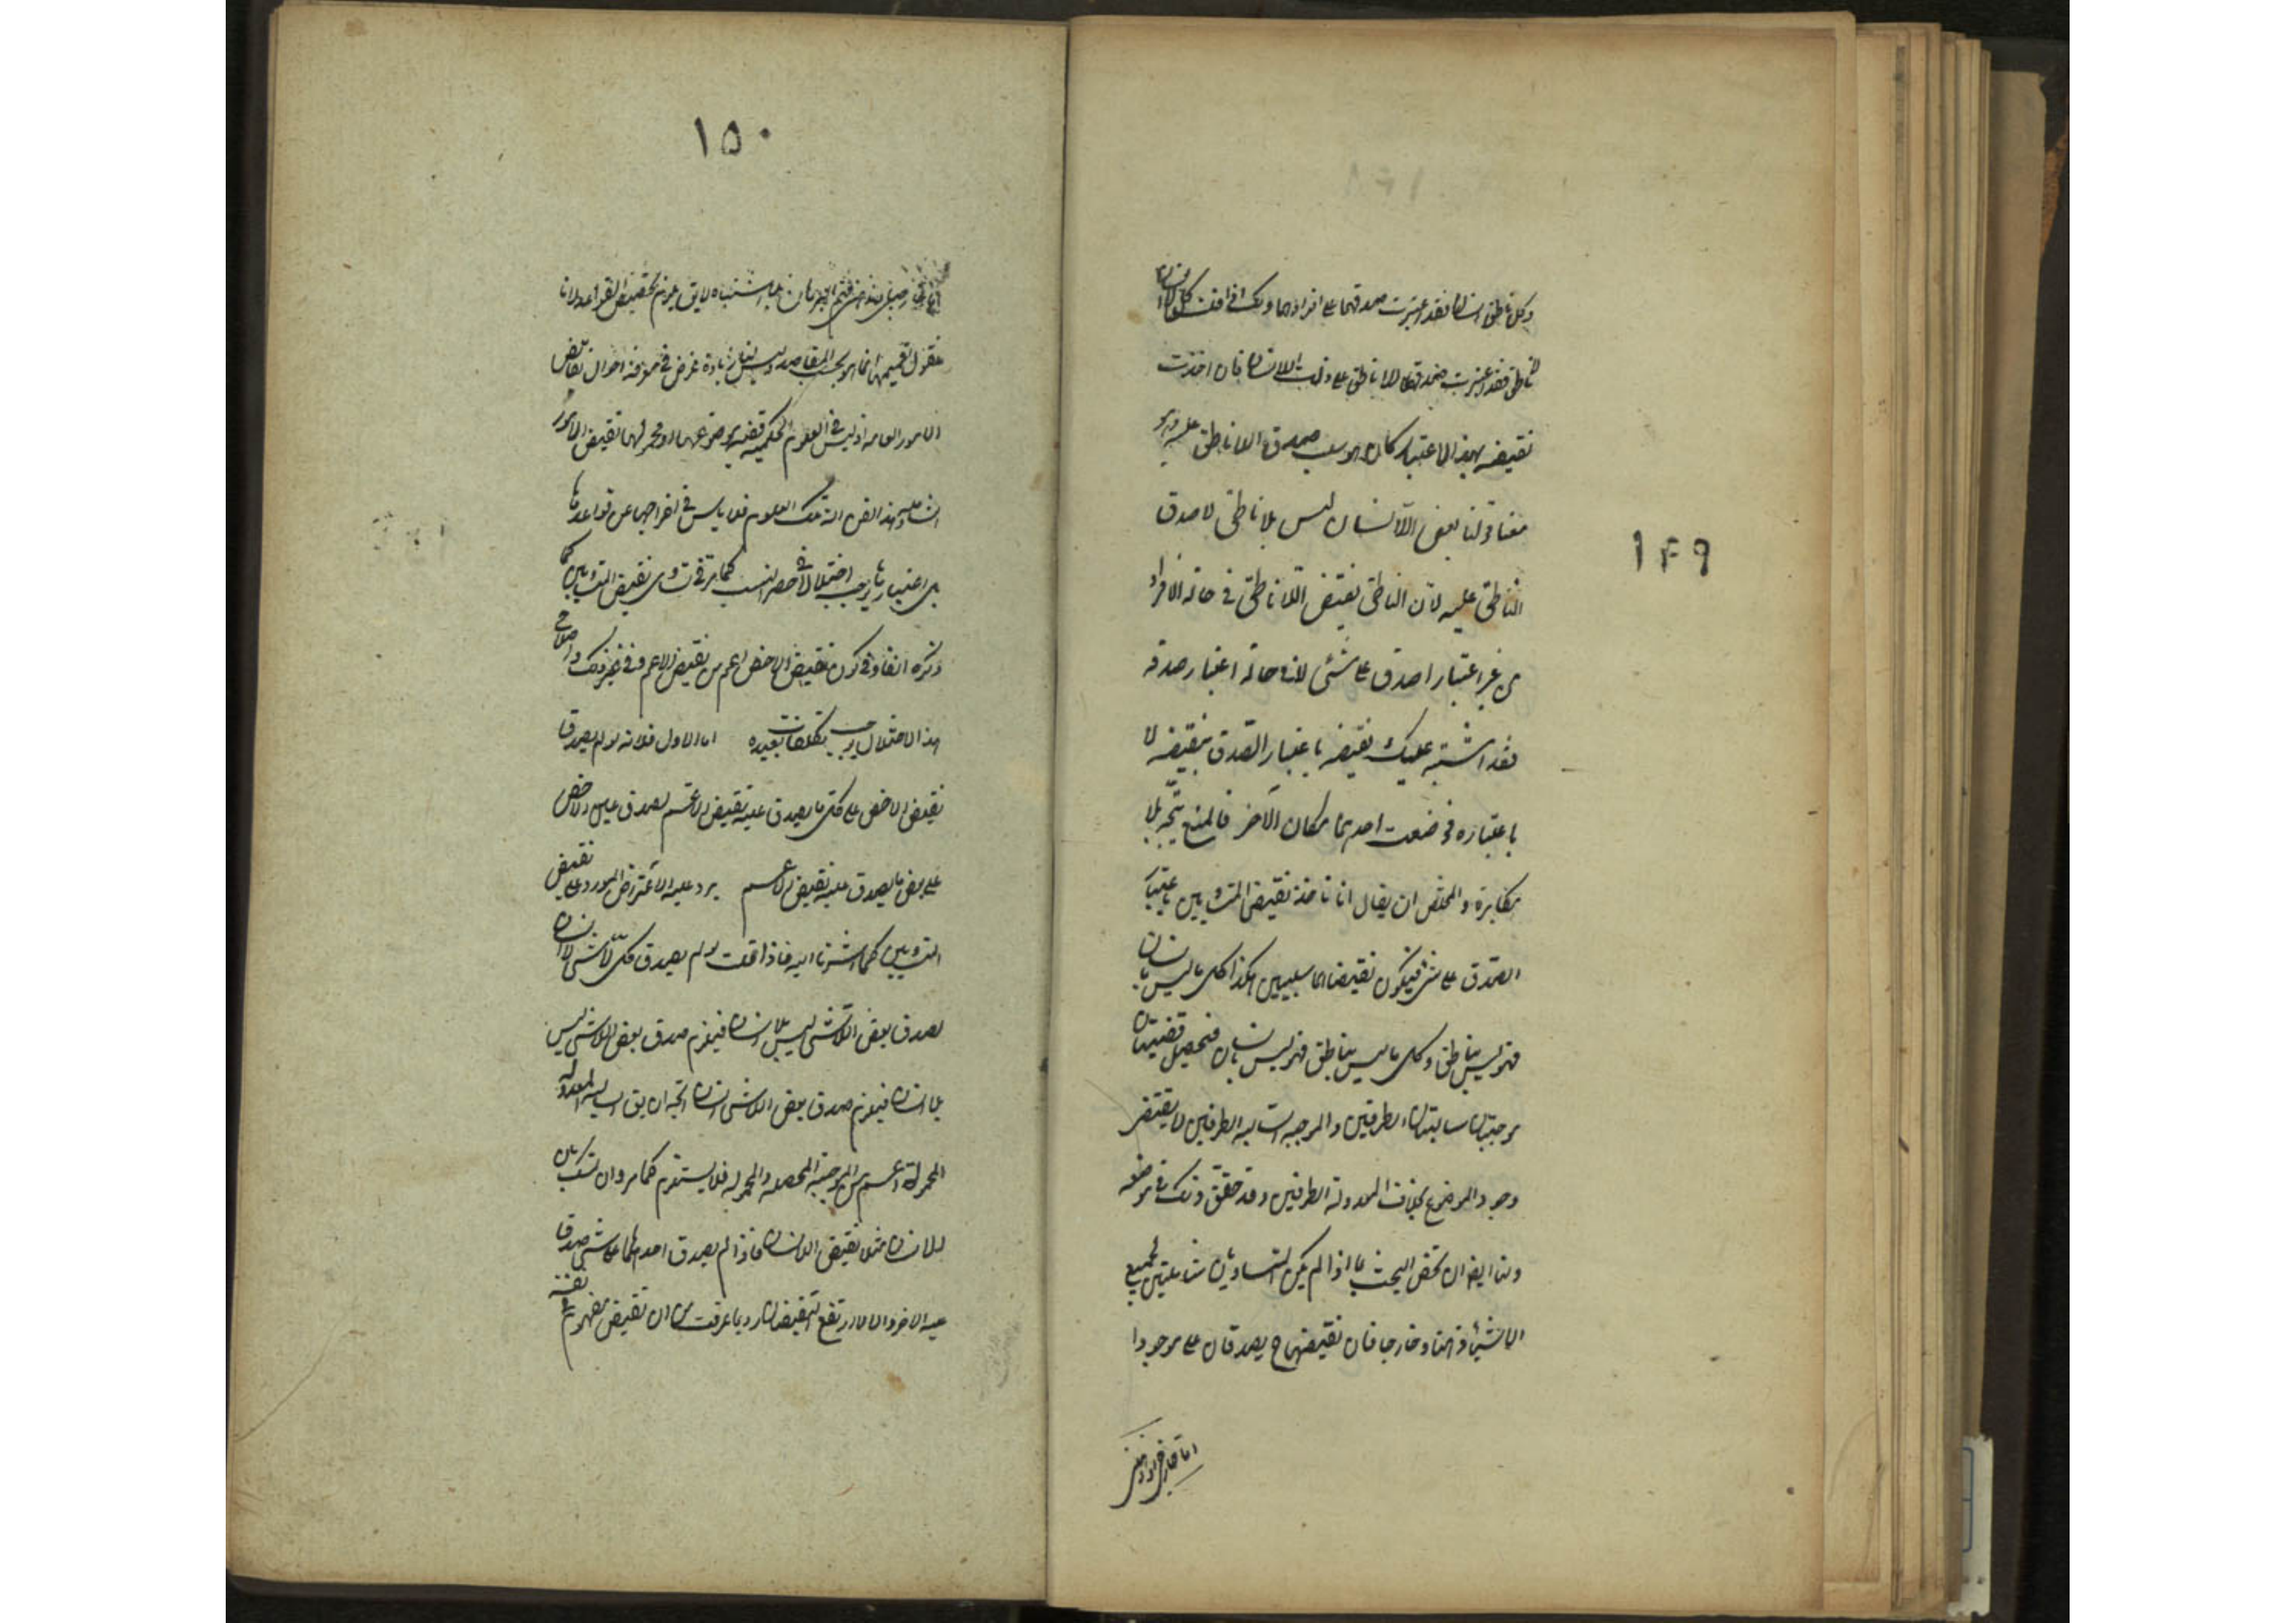 ١٤٩
وكل ناطق انسان فقد اعتبرت صدقهما على افرادهما وكك اذا قلت كل لا انسان
لا ناطق فقد اعتبرت صدق اللا ناطق على ذات اللا انسان فان اخذت
نقيضه بهذا الاعتبار كان هو سلب صدق اللا ناطق عليه وهو
معنا قولنا بعض اللا انسان ليس بلا ناطق لا صدق
الناطق عليه لان الناطق نقيض اللا ناطق في حالة الافراد
من غير اعتبار صدق على شئ لا في حالة اعتبار صدقه
فقد اشتبه عليك نقيضه باعتبار الصدق بنقيضه لا
باعتباره فوضعت احدهما مكان الآخر فالمنع متجه بلا
مكابرة والمخلص ان يقال انا ناخذ نقيض المتساويين باعتبار
الصدق على شئ فيكون نقيضاهما سلبيين هكذا كل ما ليس بانسان
فهو ليس بناطق وكل ما ليس بناطق فهو ليس بانسان فتحصل قضيتان
موجبتان سالبتا الطرفين والموجبة السالبة الطرفين لا يقتضى
وجود الموضوع بخلاف المعدولة الطرفين وقد حقق ذلك في موضعه
ولنا ايضا ان نخص البحث بما اذا لم يكن المتساويان شاملين لجميع
الاشياء ذهنا وخارجا فان نقيضيهما ح يصدقان على موجود
١٥٠
فنقول تعميمها انما هو بحسب المقاصد وليس لنا زيادة غرض في معرفة احوال نقايض
الامور العامة اذ ليس في العلوم الحكمية قضية موضوعها او محمولها نقيض الامور
الشاملة وهذا الفن آلة لتلك العلوم فلا بأس في اخراجها عن قواعدها
بل اعتبارها يوجب اختلالا في حصر النسب كما مر وفي تساوى نقيضى المتساويين كما
ذكره انفا وفي كون نقيض الاخص اعم من نقيض الاعم وفي غير ذلك واصلاح
هذا الاختلال يوجب تكلفات بعيدة اما الاول فلانه لو لم يصدق
نقيض الاخص على كل ما يصدق عليه نقيض الاعم لصدق عين الاخص
على بعض ما يصدق عليه نقيض الاعم يرد عليه الاعتراض المورد على نقيض
المتساويين كما اشرنا اليه فاذا قلت لو لم يصدق كل لا شئ لا انسان
لصدق بعض اللا شئ ليس بلا انسان فيلزم صدق بعض اللا شئ ليس
بلا انسان فيلزم صدق بعض اللا شئ انسان اتجه ان يق السالبة المعدولة
المحمول اعم من الموجبة المحصلة المحمول فلا يستلزم كما مر وان تمسك بان
اللا انسان مثلا نقيض الانسان فاذا لم يصدق احدهما على شئ صدق
عليه الاخر والا لارتفع النقيضان رد بما عرفت من ان نقيض مفهوم في نفسه